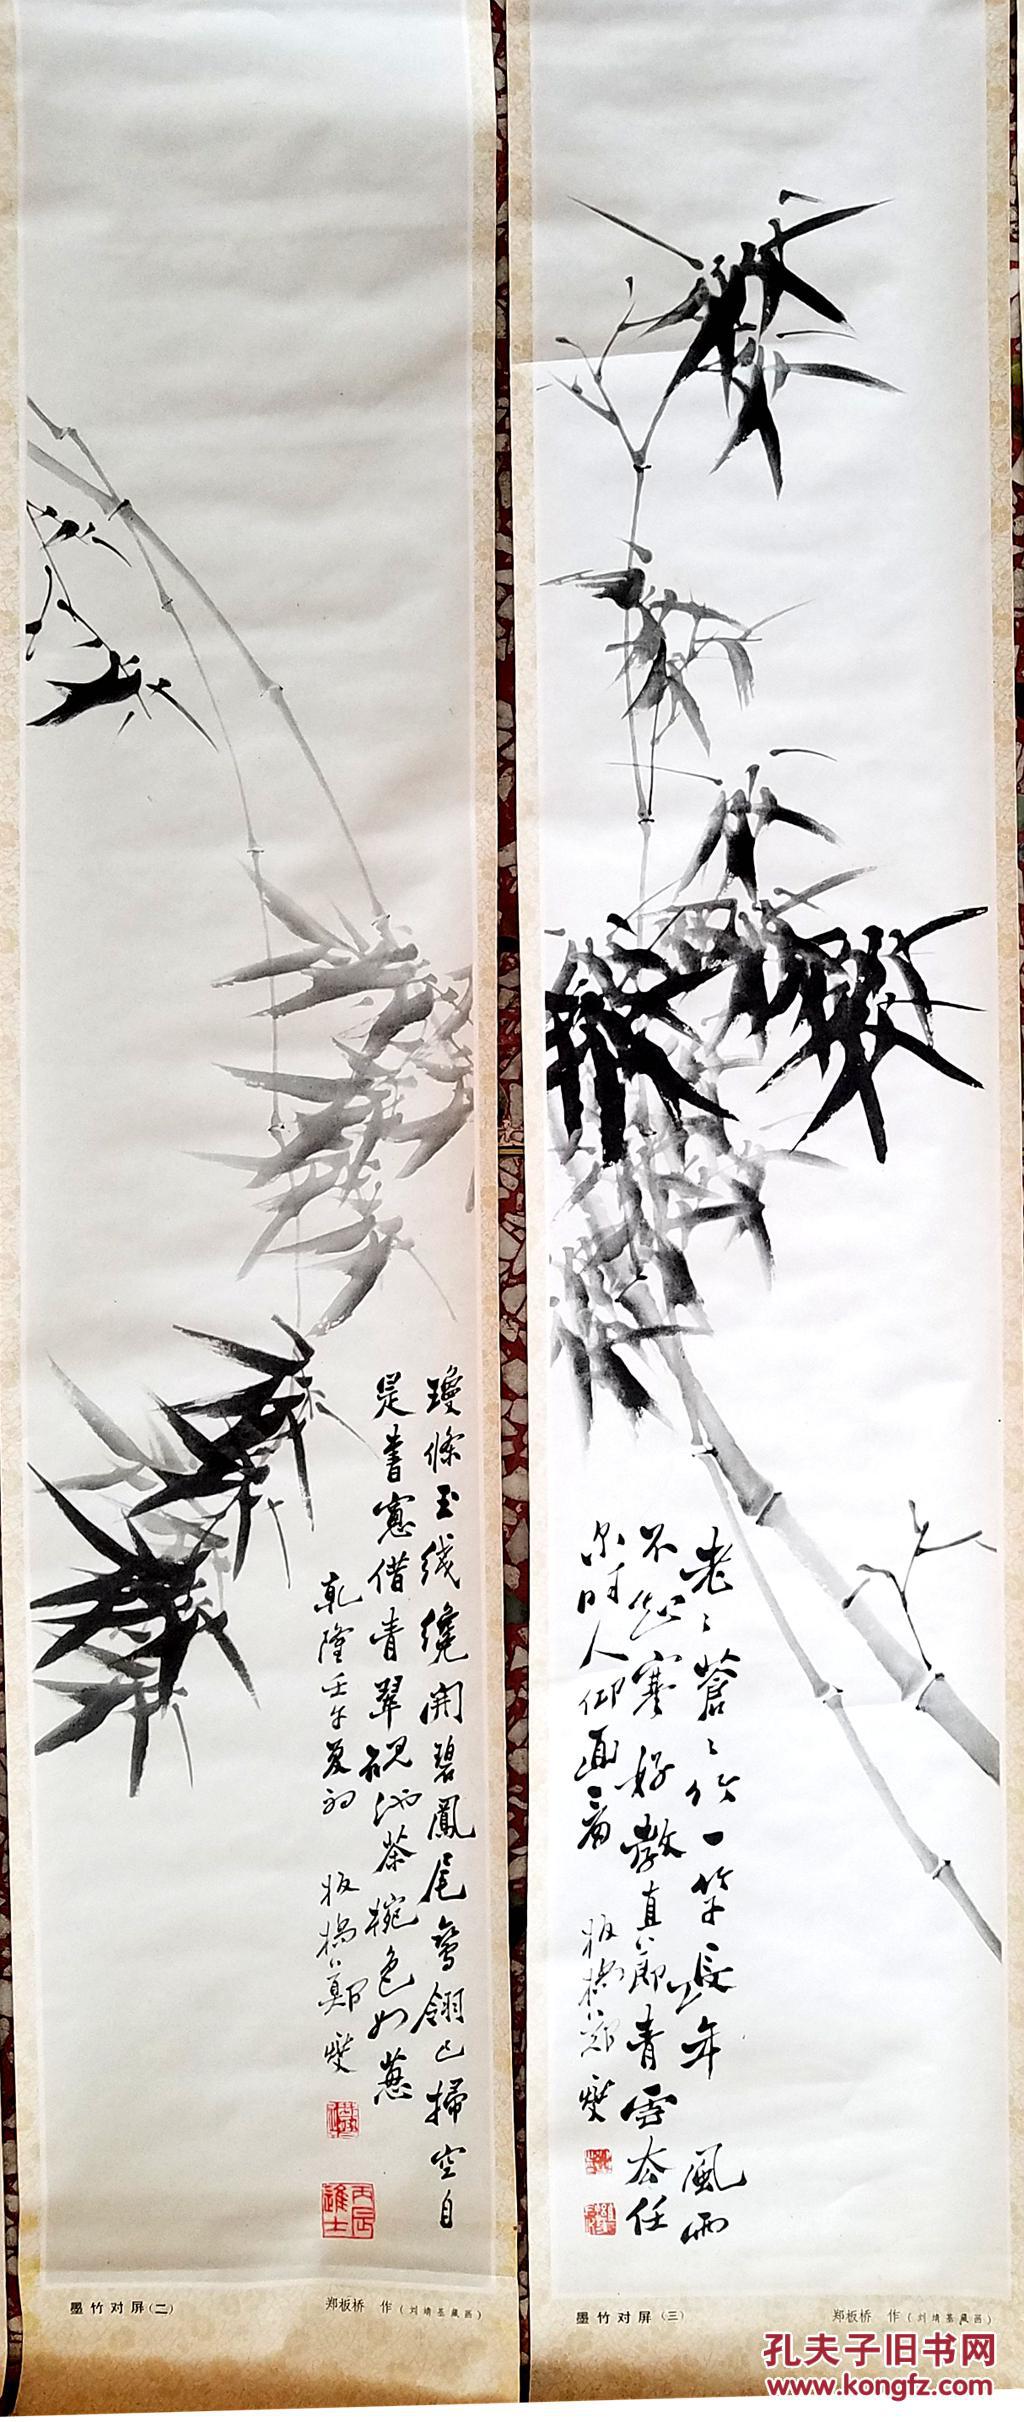 瓊條玉线纔開碧鳳尾鸞翎已掃空自
是書窻借青翠硯池茶椀色如蔥
乾隆壬午夏初 板橋鄭燮
丙辰進士
墨竹对屏(二)
郑板桥 作(刘靖基藏画)
老老蒼蒼竹一竿長年風雨
不知寒好教真節青雲去任
尔時人仰面看
板橋鄭燮
墨竹对屏(三)
郑板桥 作(刘靖基藏画)
孔夫子旧书网
www.kongfz.com